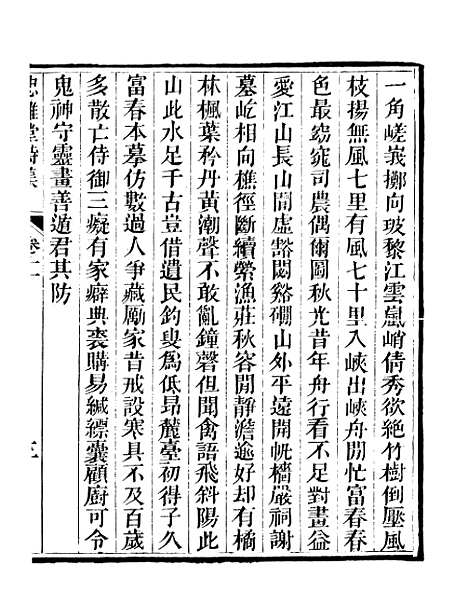 一角嵯峩擲向玻黎江雲嵐峭倩秀欲絕竹樹倒壓風
枝揚無風七里有風七十里入峽出峽舟閒忙富春春
色最窈窕司農偶爾圖秋光昔年舟行看不足對畫益
愛江山長山間虛谽閟谿磵山外平遠開帆檣嚴祠謝
墓屹相向樵徑斷續縈漁莊秋容閒靜澹逾好却有橘
林楓葉矜丹黃潮聲不敢亂鐘磬但聞禽語飛斜陽此
山此水足千古豈借遺民釣叟爲低昻麓臺初得子久
富春本摹仿數過人爭藏勵家昔戒設寒具不及百歲
多散亡侍御三癡有家癖典裘購易緘縹囊顧廚可令
鬼神守靈畫善遁君其防
忠雅堂詩集
卷二
三